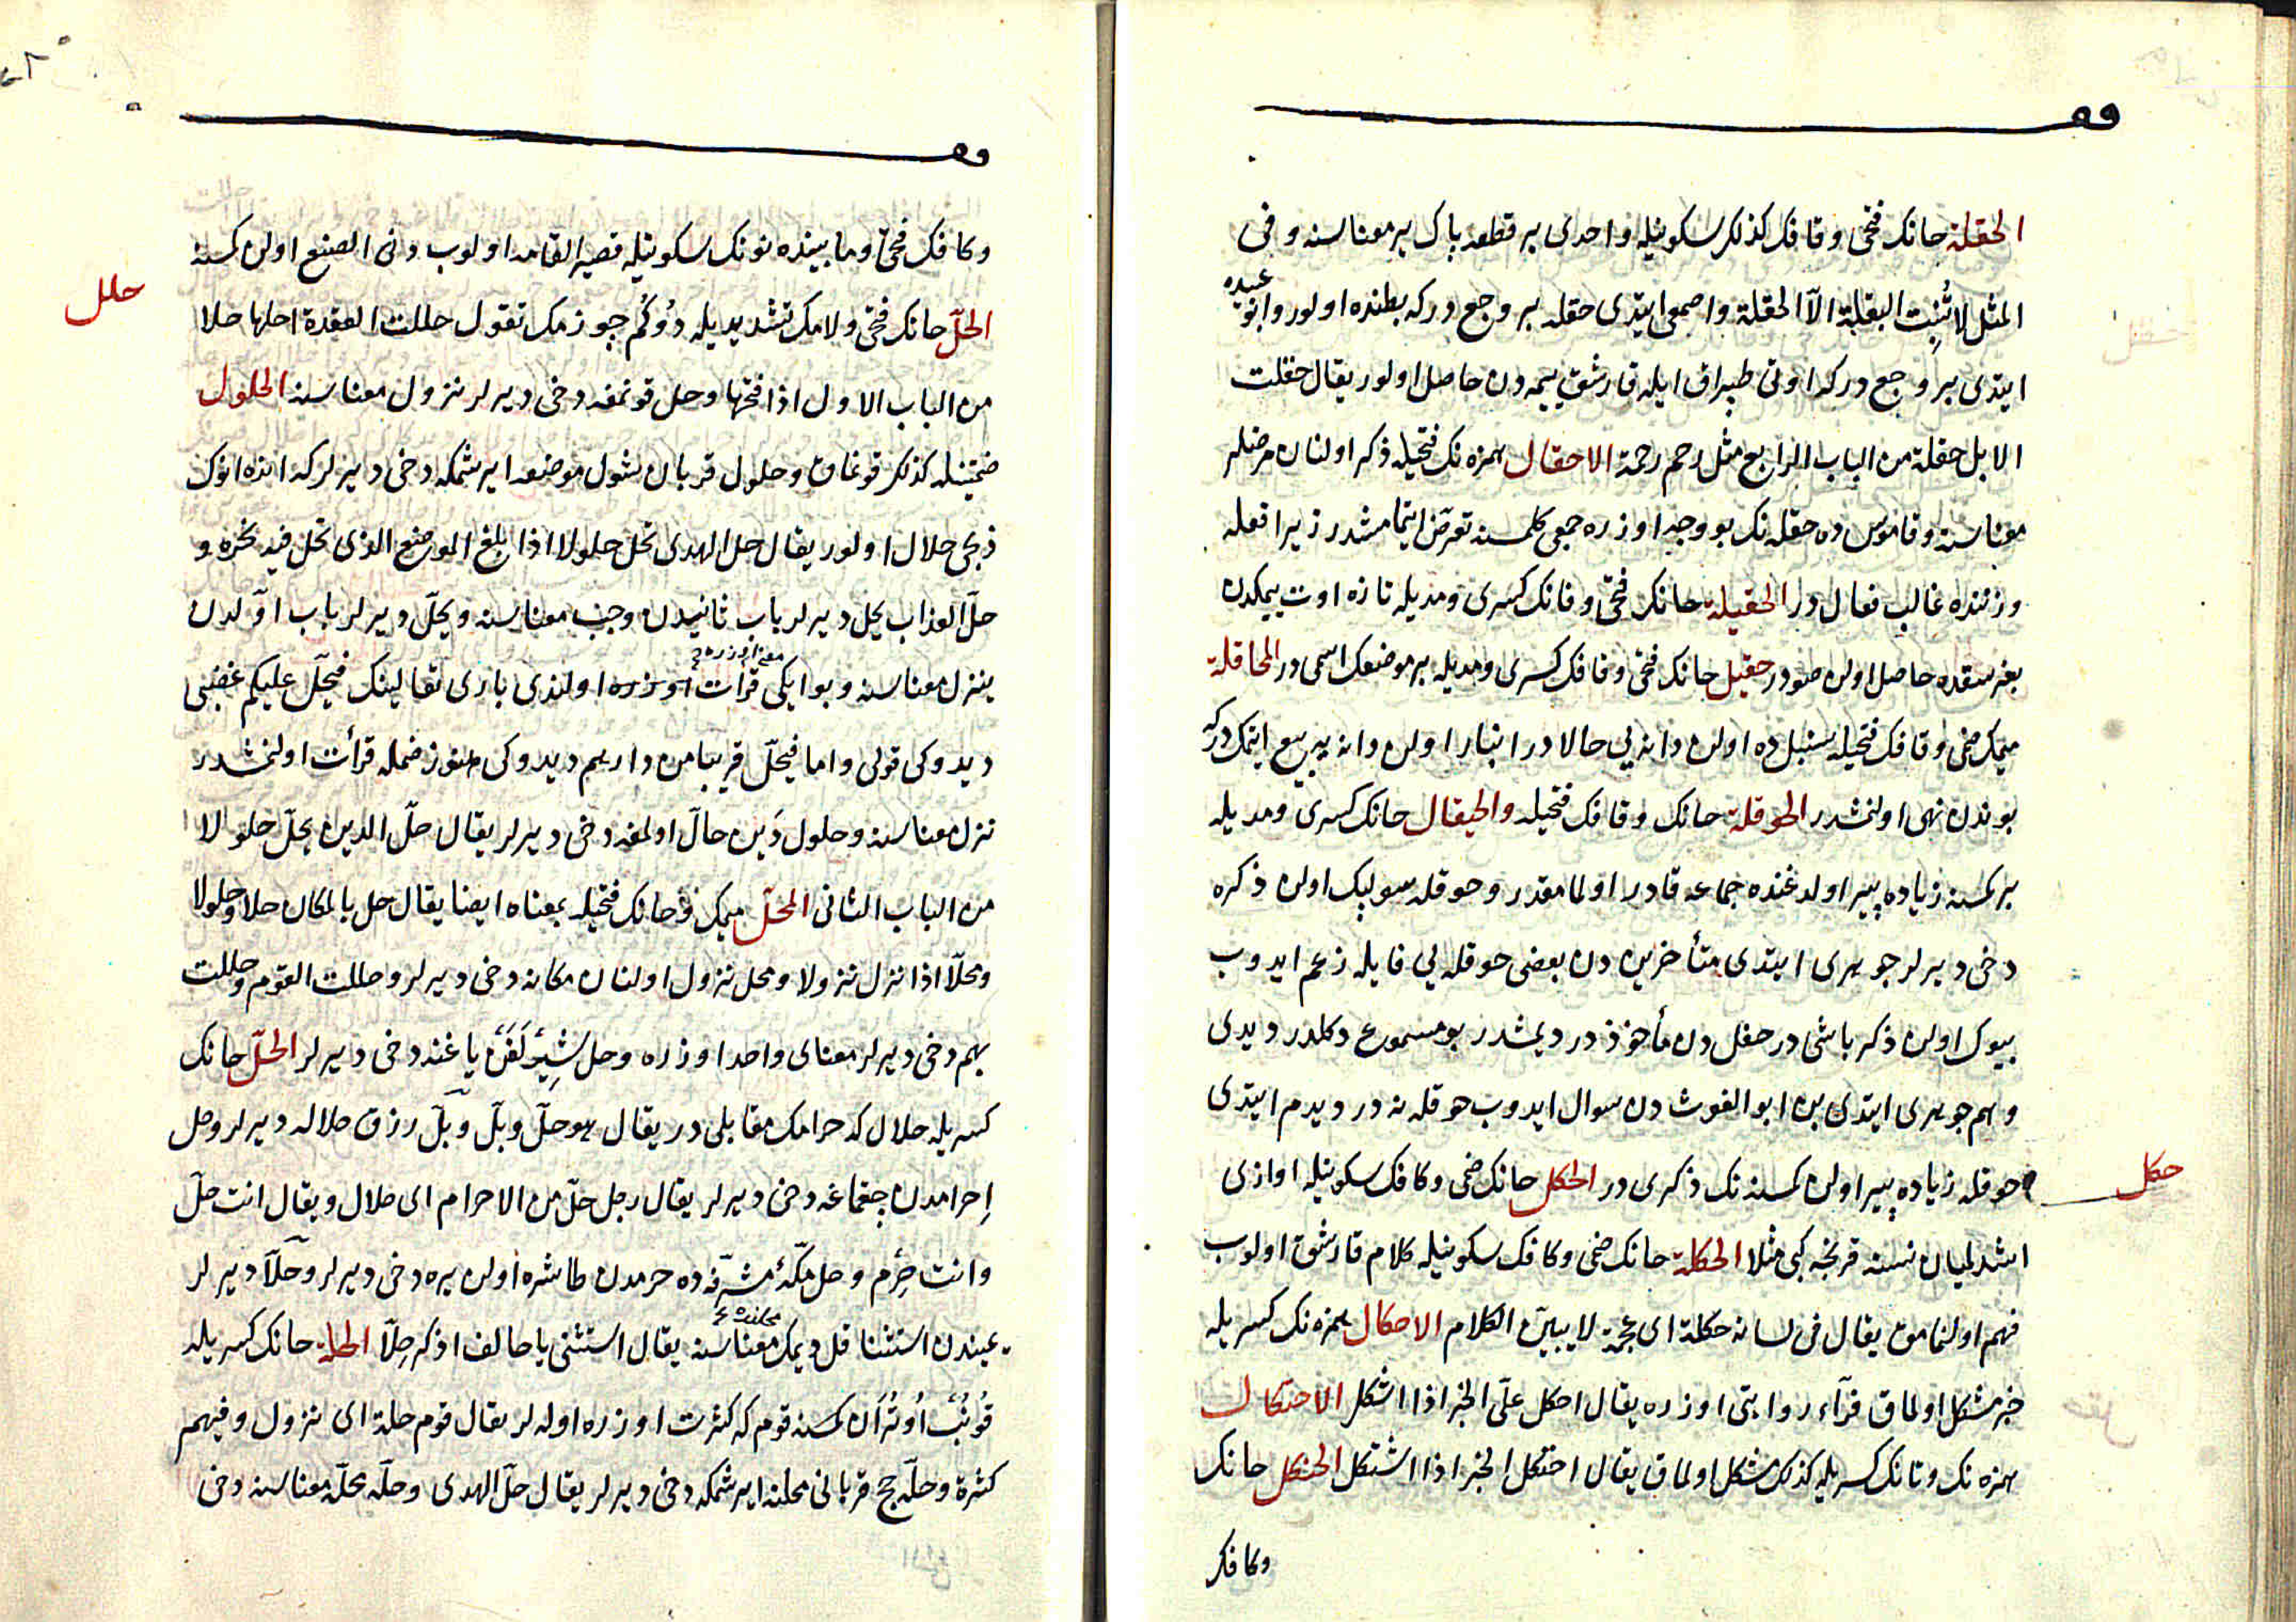 الحقلة حانك فتحی وقافك كذلك سكونیله واحدی بر قطعه پاك یر معناسنه وفی
المثل لا تُنبِت البقلة الا الحقلة واصمعی ایتدی حقله بر وجع در كه بطنده اولور وابو عبیده
ایتدی بر وجع دركه اوتی طپراق ایله قارشق ییمه دن حاصل اولور یقال حقلت
الابل حقلة من الباب الرابع مثل رحم رحمة الاحقال همزه نك فتحیله ذكر اولنان مرضلر
معناسنه وقاموس ده حقله نك بو وجه اوزره جمعی كلمسنه تعرض ایتمامشدر زیرا فعله
وزننده غالب فعال در الحقیلة حانك فتحی وقافك كسری ومدیله تازه اوت ییمكدن
بغرسقده حاصل اولن صودر حقیل حانك فتحی وقافك كسری ومدیله بر موضعك اسمی در المحاقلة
میمك ضمی وقافك فتحیله سنبل ده اولن دانه یی حالا در انبار اولن دانه یه بیع ایتمك در كه
بوندن نهی اولنمشدر الحوقلة حانك وقافك فتحیله والحیقال حانك كسری ومدیله
بر كمسنه زیاده پیر اولدغنده جماعه قادر اولمامقدر وحوقله سولپك اولن ذكره
دخی دیرلر جوهری ایتدی متأخرین دن بعضی حوقله یی فایله زعم ایدوب
بیوك اولن ذكر باشی در حفل دن مأخوذ در دیمشدر بو مسموع دكلدر دیدی
وهم جوهری ایتدی بن ابو الغوث دن سوال ایدوب حوقله نه در دیدم ایتدی
حوقله زیاده پیر اولن كمسنه نك ذكری در الحكل حانك ضمی وكافك سكونیله اوازی
حكل
اشدلمیان نسنه قرنجه كبی مثلا الحكلة حانك ضمی وكافك سكونیله كلام قارشق اولوب
فهم اولنمامق یقال فی لسانه حكلة ای عجمة لا یبین الكلام الاحكال همزه نك كسریله
خبر مشكل اولماق فرآء روایتی اوزره یقال احكل علی الخبر اذا اشكل الاحتكال
همزه نك وتانك كسریله كذلك مشكل اولماق یقال احتكل الخبر اذا اشتكل الحنكل حانك
وكافك
وكافك فتحی ومابینده نونك سكونیله قصیر القامه اولوب دنی الصنع اولن كمسنه
حلل
الحلّ حانك فتحی ولامك تشدیدیله دُوكُم چوزمك تقول حللت العقدة احلها حلا
من الباب الاول اذا فتحها وحل قونمغه دخی دیرلر نزول معناسنه الحلول
ضمتینله كذلك قونماق وحلول قربان شول موضعه ایرشمكه دخی دیرلركه انده انوك
ذبحی حلال اولور یقال حل الهدی یحل حلولا اذا بلغ الموضع الذی یحل فیه نحره و
حلّ العذاب یحل دیرلر باب ثانیدن وجب معناسنه ویحلّ دیرلر باب اوّلدن
ینزل معناسنه وبو ایكی معنا اوزره قرأت اولندی باری تعالینك فیحلّ علیكم غضبی
دیدوكی قولی واما فیحلّ قریبا من دارهم دیدوكی هنوز ضمله قرأت اولنمشدر
تنزل معناسنه وحلول دَین حالّ اولمغه دخی دیرلر یقال حلّ الدین یحلّ حلولا
من الباب الثانی المحلّ میمك وحانك فتحیله بمعناه ایضا یقال حل بالمكان حلا وحلولا
ومحلّا اذا نزل نزولا ومحل نزول اولنان مكانه دخی دیرلر وحللت القوم وحللت
بهم دخی دیرلر معنای واحد اوزره وحل یاغنه دخی دیرلر الحلّ حانك
كسریله حلال كه حرامك مقابلی در یقال هو حلّ وبلّ وبلّ رزق حلاله دیرلر وحل
اِحرامدن چقماغه دخی دیرلر یقال رجل حلّ من الاحرام ای حلال ویقال انت حلّ
وانت حِرم وحل مكّهٔ مشرّفه ده حرمدن طاشره اولن یره دخی دیرلر وحلّا دیرلر
یمیندن استثنا قل دیمك محلنده یقال استثنی یا حالف اذكر حِلّا الحلة حانك كسریله
قُونُب اُوتُرَان كمسنه قوم كه كثرت اوزره اوله لر یقال قوم حلة ای نزول وفیهم
كثرة وحلّه حج قربانی محلنه ایرشمكه دخی دیرلر یقال حلّ الهدی وحلّه محلّه معناسنه دخی